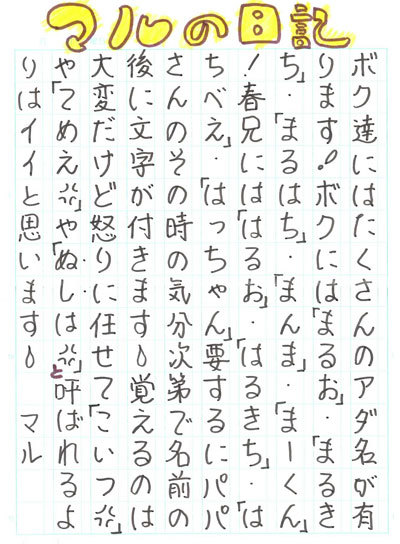 マルの日記
ボク達にはたくさんのアダ名が有
ります!ボクには「まるお」・「まるき
ち」・「まるはち」・「まんま」・「まーくん」
!春兄には「はるお」・「はるきち」・「は
ちべえ」・「はっちゃん」要するにパパ
さんのその時の気分次第で名前の
後に文字が付きます。覚えるのは
大変だけど怒りに任せて「こいつ💢」
や「てめえ💢」や「ぬしは💢」と呼ばれるよ
りはイイと思います。 マル